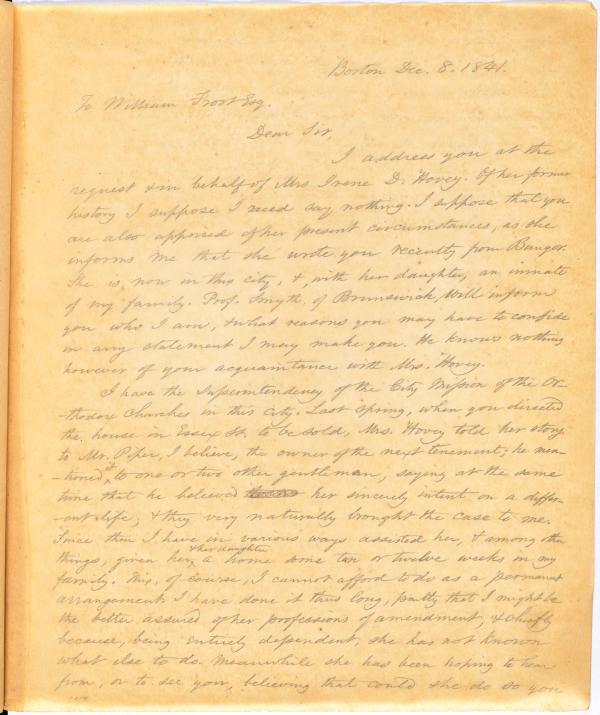 Boston Dec. 8. 1841.
To William Frost Esq.
Dear Sir,
I address you at the
request & in behalf of Mrs Irene D. Hovey. Of her former
history I suppose I need say nothing. I suppose that you
are also apprised of her present circumstances, as she
informs me that she wrote you recently from Bangor.
She is now in this city, &, with her daughter, an inmate
of my family. Prof. Smyth, of Brunswick, will inform
you who I am, & what reasons you may have to confide
in any statement I may make you. He knows nothing
however of your acquaintance with Mrs. Hovey.
I have the Superintendency of the City Mission of the Or-
-thodox Churches in this City. Last Spring, when you directed
the house in Essex St. to be sold, Mrs. Hovey told her story
to Mr. Piper, I believe, the owner of the next tenement; he men-
-tioned it to one or two other gentleman, saying at the same
time that he believed her sincerely intent on a differ-
-ent life; & they very naturally brought the case to me.
Since then I have in various ways assisted her, & among other
things, given her & her daughter a home some ten or twelve weeks in my
family. This, of course, I cannot afford to do as a permanent
arrangement. I have done it thus long, partly that I might be
the better assured of her professions of amendment, & chiefly
because, being entirely dependent, she has not known
what else to do. Meanwhile she has been hoping to hear
from, or to see you, believing that could she do so you